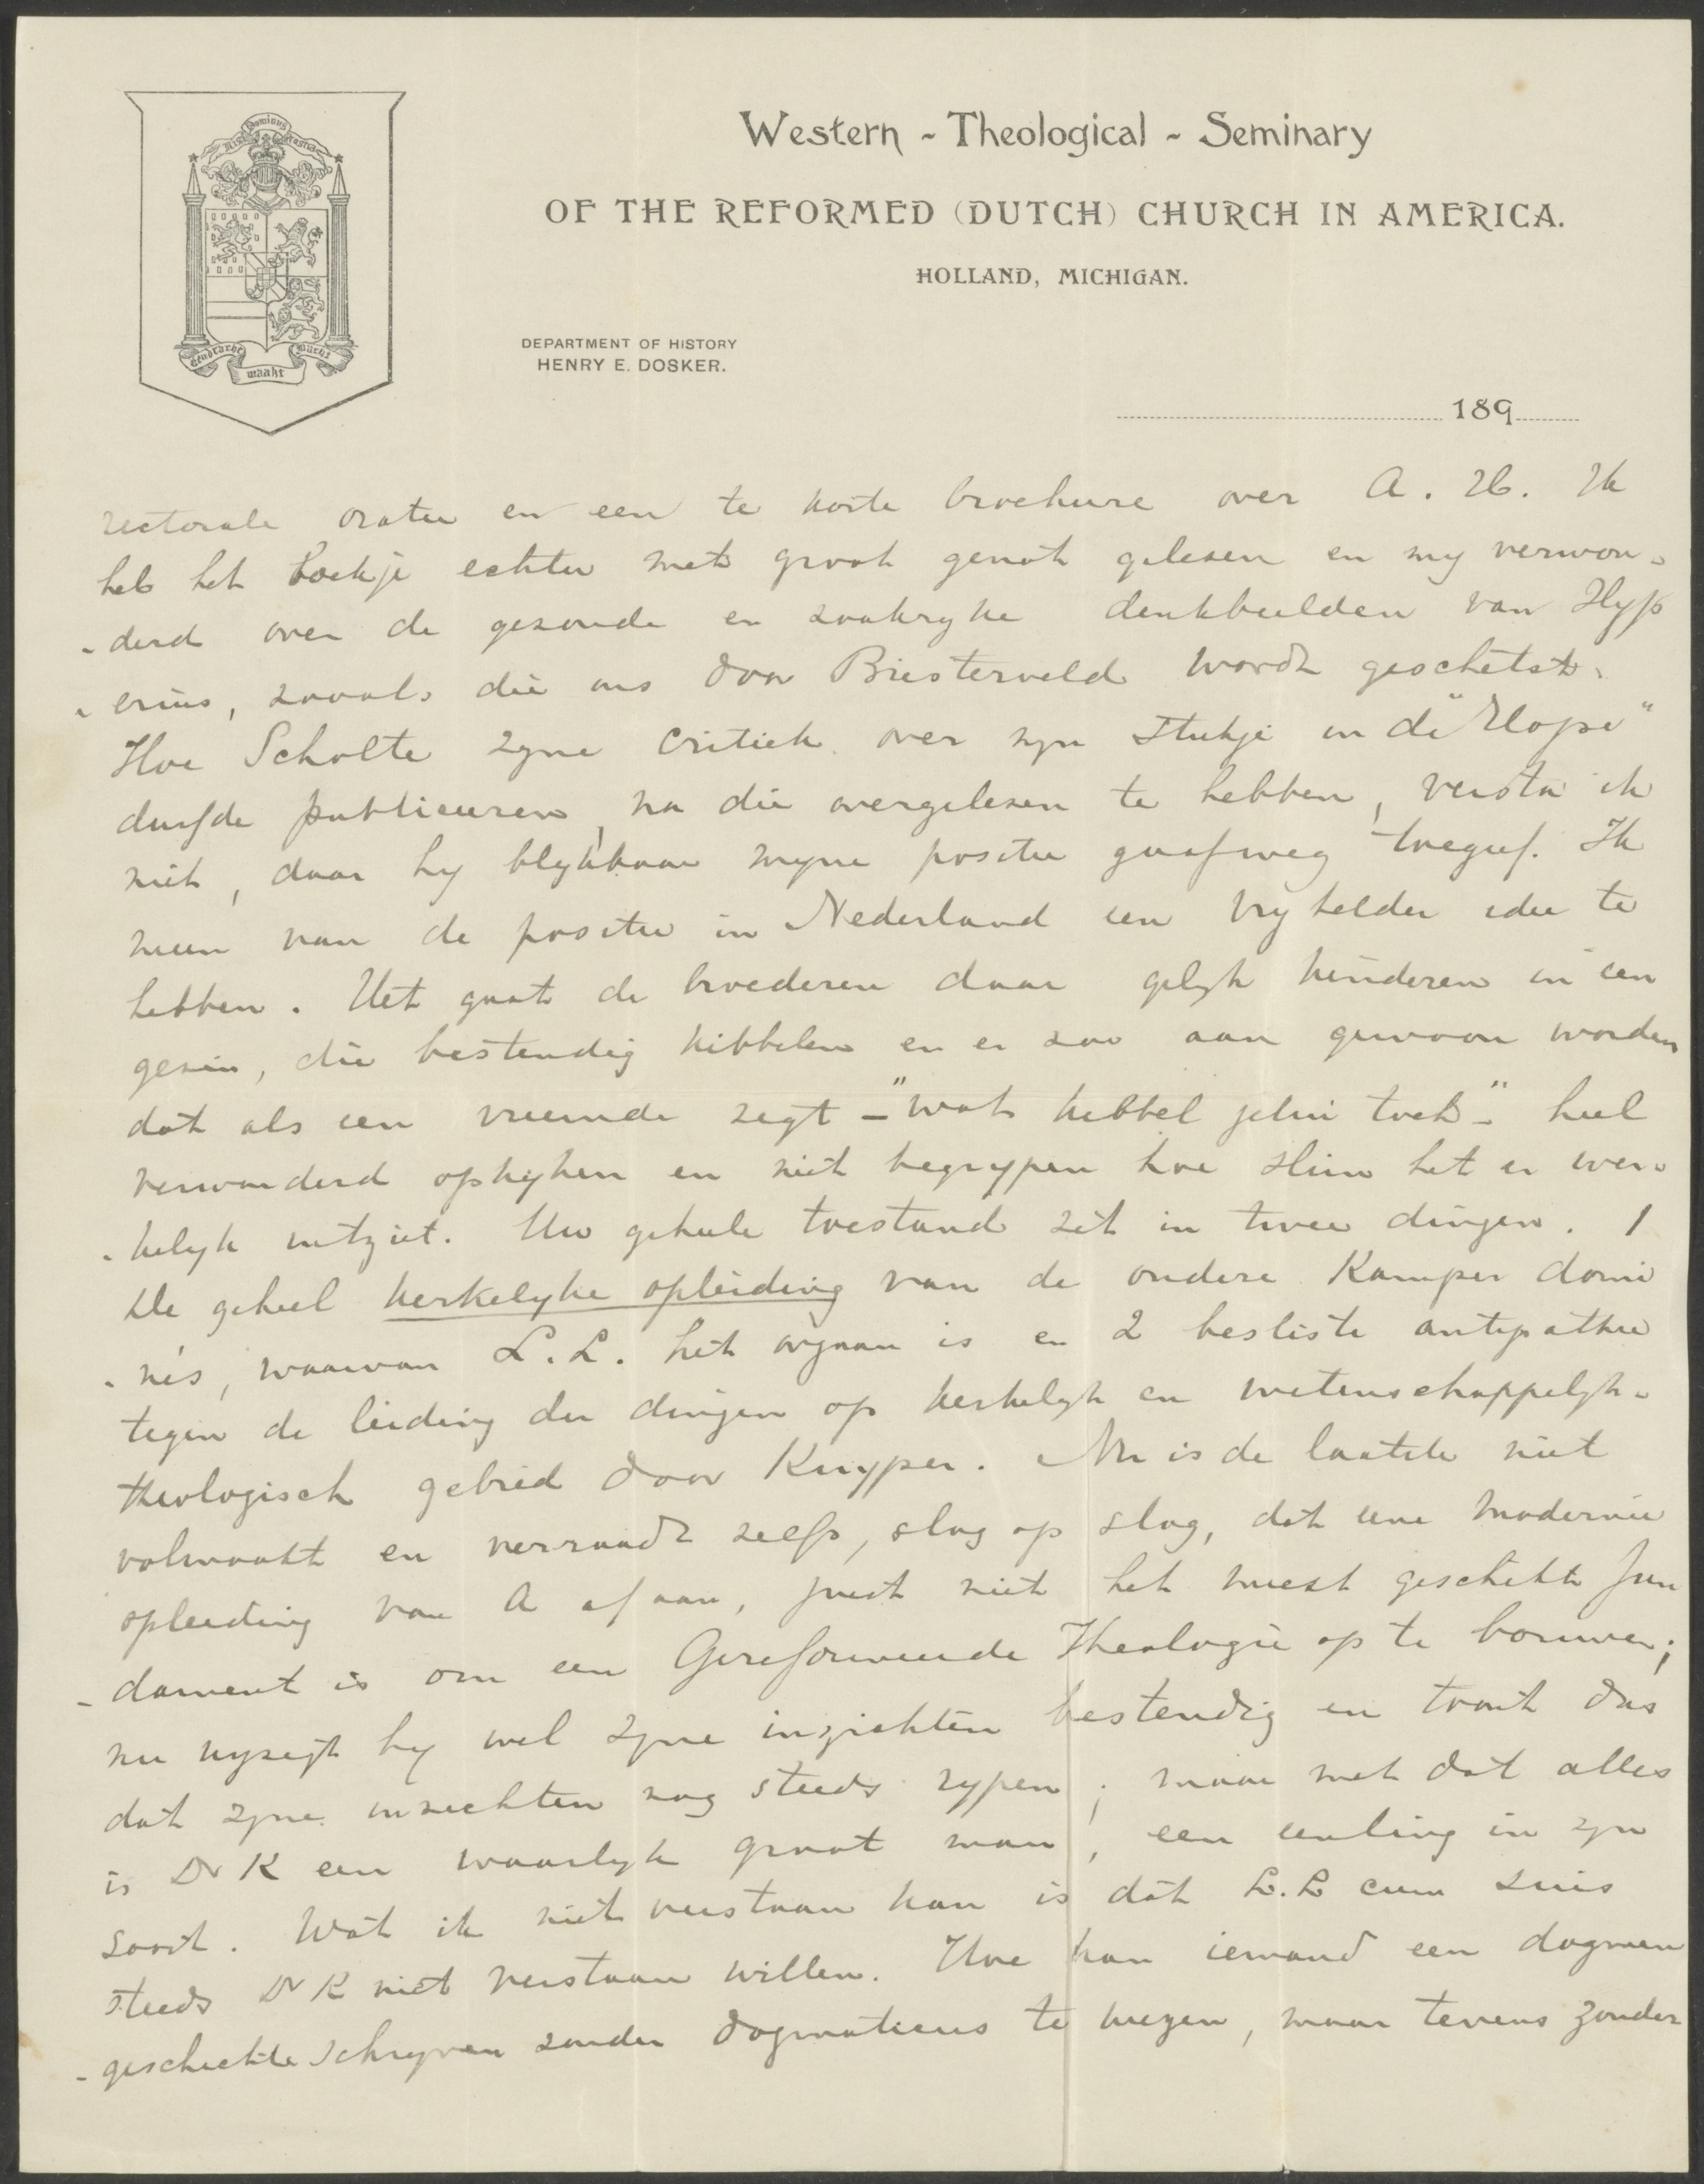 Nisi Dominus Frustra
Eendracht maakt macht
Western - Theological - Seminary
OF THE REFORMED (DUTCH) CHURCH IN AMERICA.
HOLLAND, MICHIGAN.
DEPARTMENT OF HISTORY
HENRY E. DOSKER.
189
rectorale oratie en een te korte brochure over A. H. Ik
heb het boekje echter met groot genot gelezen en my verwon-
-derd over de gezonde en zaakryke denkbeelden van Hyp
-erius, zooals die ons door Biesterveld wordt geschetst.
Hoe Scholte zyne critiek over myn stukje in de "Hope"
durfde publiceeren, na die overgelezen te hebben, versta ik
niet, daar hy blykbaar myne positie gaafweg toegaf. Ik
meen van de positie in Nederland een vry helder idee te
hebben. Het gaat de broederen daar gelyk kinderen in een
gezin, die bestendig kibbelen en er zoo aan gewoon worden
dat als een vreemde zegt - "wat kibbel jelui toch" - heel
verwonderd opkyken en niet begrypen hoe slim het er wer-
-kelyk uitziet. Uw geheele toestand zit in twee dingen. 1
De geheel kerkelyke opleiding van de oudere Kamper domi
-nés, waarvan L. L. het orgaan is en 2 besliste antipathie
tegen de leiding der dingen op kerkelyk en wetenschappelyk-
theologisch gebied door Kuyper. Nu is de laatste niet
volmaakt en verraadt zelfs, slag op slag, dat eene moderne
opleiding van A af aan, juist niet het meest geschikte fun
-dament is om een Gereformeerde Theologie op te bouwen;
nu wyzigt hy wel zyne inzichten bestendig en toont dus
dat zyne inzichten nog steeds rypen; maar met dat alles
is Dr K een waarlyk groot man, een eenling in zyn
soort. Wat ik niet verstaan kan is dat L. L cum suis
steeds Dr K niet verstaan willen. Hoe kan iemand een dogmen
-geschichte schryven zonder dogmaticus te wezen, maar tevens zonder